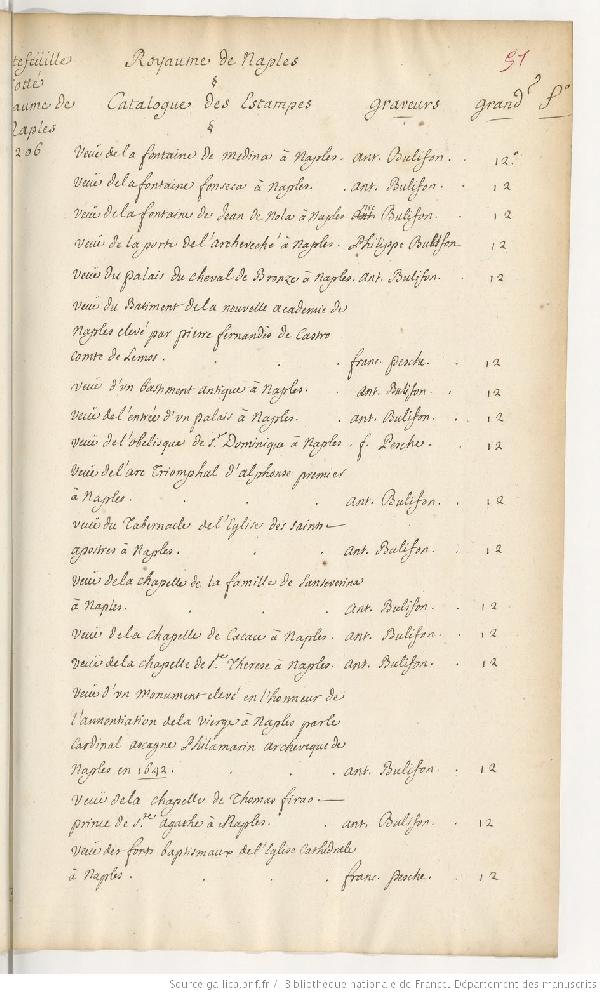 tefeüille Royaume de Naples 51
cotté §
aume de Catalogue des Estampes graveurs grand.r fo.
Naples §
206
Veüe de la fontaine de medina à Naples. ant. Bulifon. . 12.
Veüe de la fontaine fonseca à Naples. . Ant. Bulifon. . 12
Veüe de la fontaine de Jean de Nola à Naples Ant. Bulifon. . 12
Veüe de la porte de l'archeveché à Naples. Philippe Bulifon 12
Veüe du palais du cheval de Bronze à Naples. ant. Bulifon. . 12
Veüe du Batiment de la nouvelle academie de
Naples elevé par pierre fernandés de Castro
Comte de Lemos. . . . franc. pesche. . 12
Veüe d'vn bastiment antique à Naples. . ant. Bulifon . 12
Veüe de l'entrée d'vn palais à Naples. . ant. Bulifon. . 12
Veüe de l'obelisque de St. Dominique à Naples. f. Pesche. . 12
Veüe de l'arc Triomphal d'alphonse premier
à Naples. . . . ant. Bulifon. . 12
Veüe du Tabernacle de l'Eglise des saints
apostres à Naples. . . ant. Bulifon. . 12
Veüe de la chapelle de la famille de Sanseverina
à Naples. . . . Ant. Bulifon. . 12
Veüe de la Chapelle de Cacace à Naples. ant. Bulifon. . 12
Veüe de la chapelle de Ste. Therese à Naples. Ant. Bulifon. . 12
Veüe d'vn Monument elevé en l'honneur de
l'annontiation de la Vierge à Naples par le
Cardinal ascagne Philamarin archeveque de
Naples en 1642. . . . ant. Bulifon. . 12
Veüe de la chapelle de Thomas firao
prince de Ste. agathe à Naples. . ant. Bulifon. . 12
Veüe des fonts baptismaux de l'Eglise Cathedrale
à Naples. . . . franc. pesche. . 12
Source gallica.bnf.fr / Bibliothèque nationale de France. Département des manuscrits